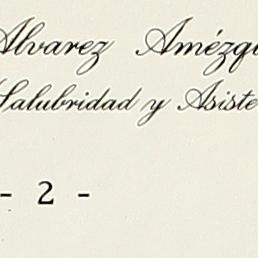 Alvarez Amézqu
Salubridad y Asiste
- 2 -